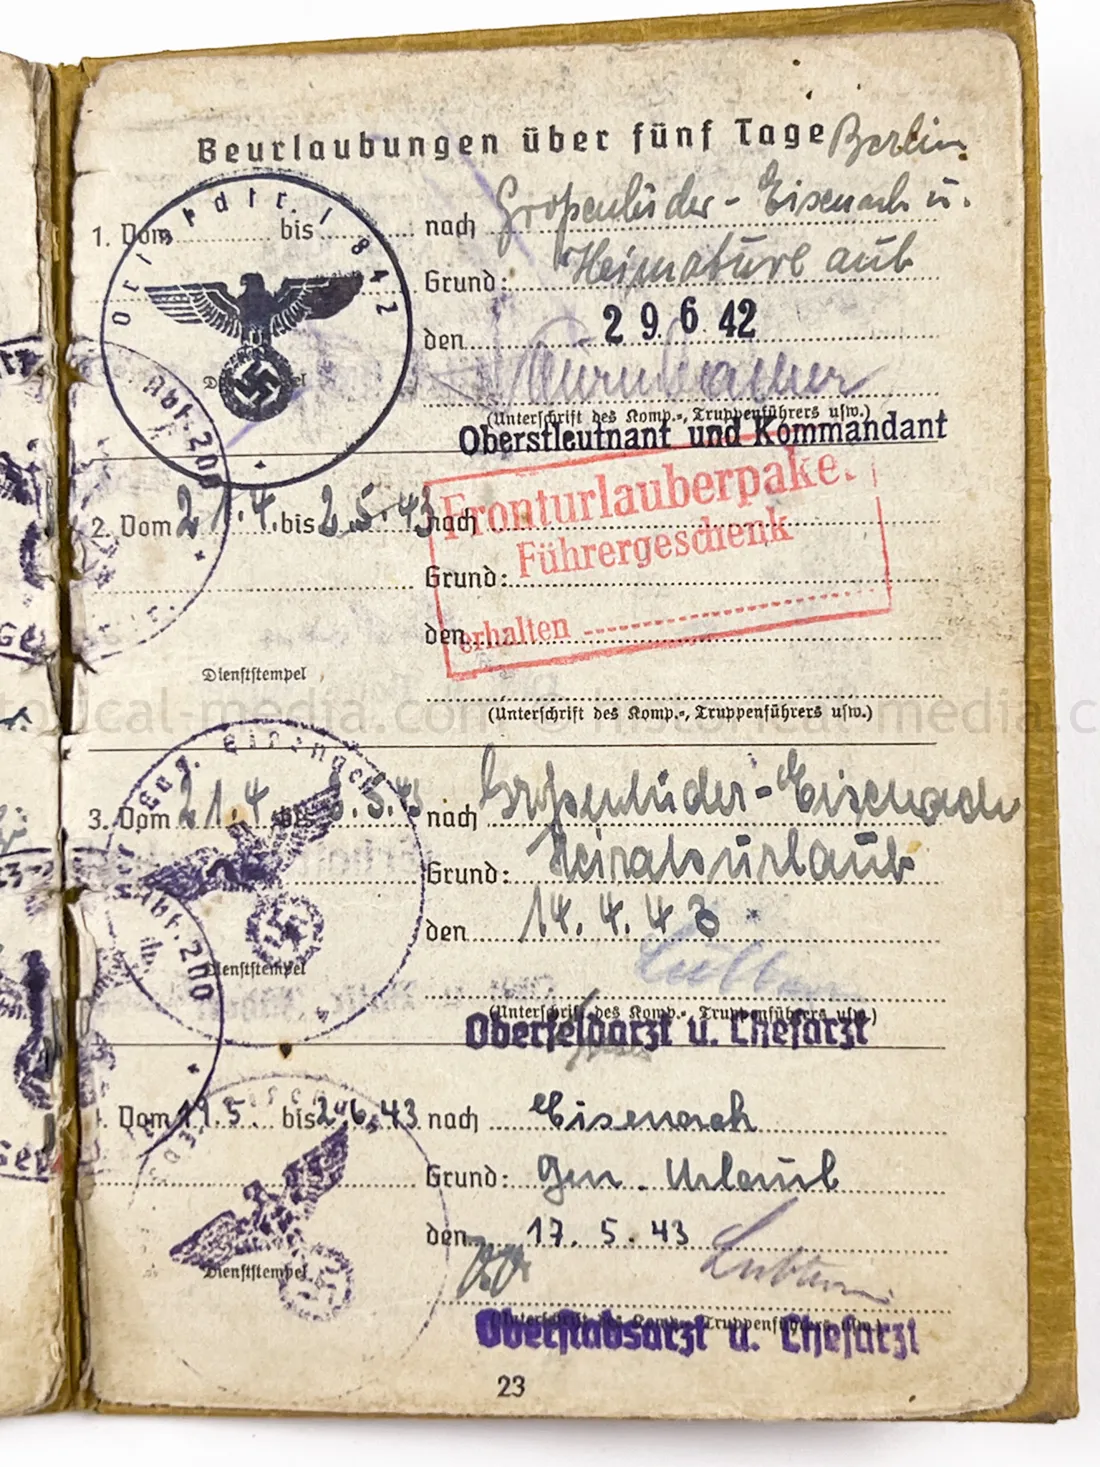 Beurlaubungen über fünf Tage Berlin
1. Vom bis nach Großenlüder - Eisenach u.
Grund: Heimaturlaub
den 29.6.42
Ortskdtr. I 842
Dienststempel
(Unterschrift des Komp.-, Truppenführers usw.)
Oberstleutnant und Kommandant
2. Vom 21.4. bis 2.5.43 nach
Fronturlauberpaket
Führergeschenk
Grund:
erhalten
den
Dienststempel
(Unterschrift des Komp.-, Truppenführers usw.)
3. Vom 21.4 bis 3.5.43 nach Großenlüder - Eisenach
Grund: Heiratsurlaub
den 14.4.43
Dienststempel
(Unterschrift des Komp.-, Truppenführers usw.)
Oberfeldarzt u. Chefarzt
4. Vom 19.5. bis 2.6.43 nach Eisenach
Grund: Gen. Urlaub
den 17.5.43
Dienststempel
(Unterschrift des Komp.-, Truppenführers usw.)
Oberstabsarzt u. Chefarzt
23
historical-media.com © historical-media.c